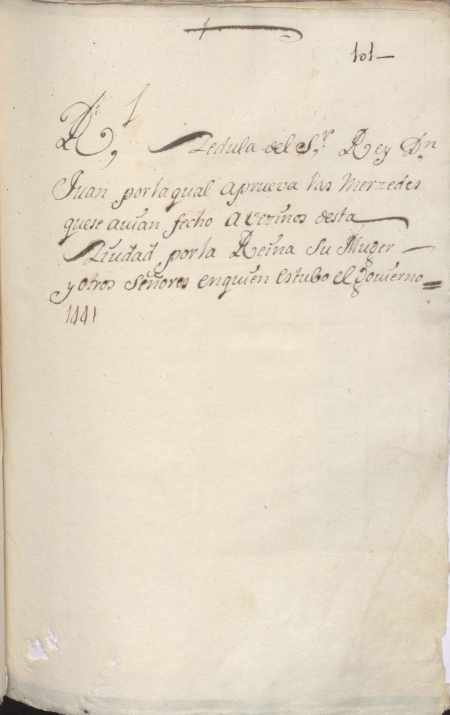 101
Rl. 1 Zedula del Sr. Rey Dn
Juan por la qual aprueva las Merzedes
que se avian fecho a vezinos desta
Ziudad por la Reina su Muger
y otros señores en quien estubo el govierno =
1441